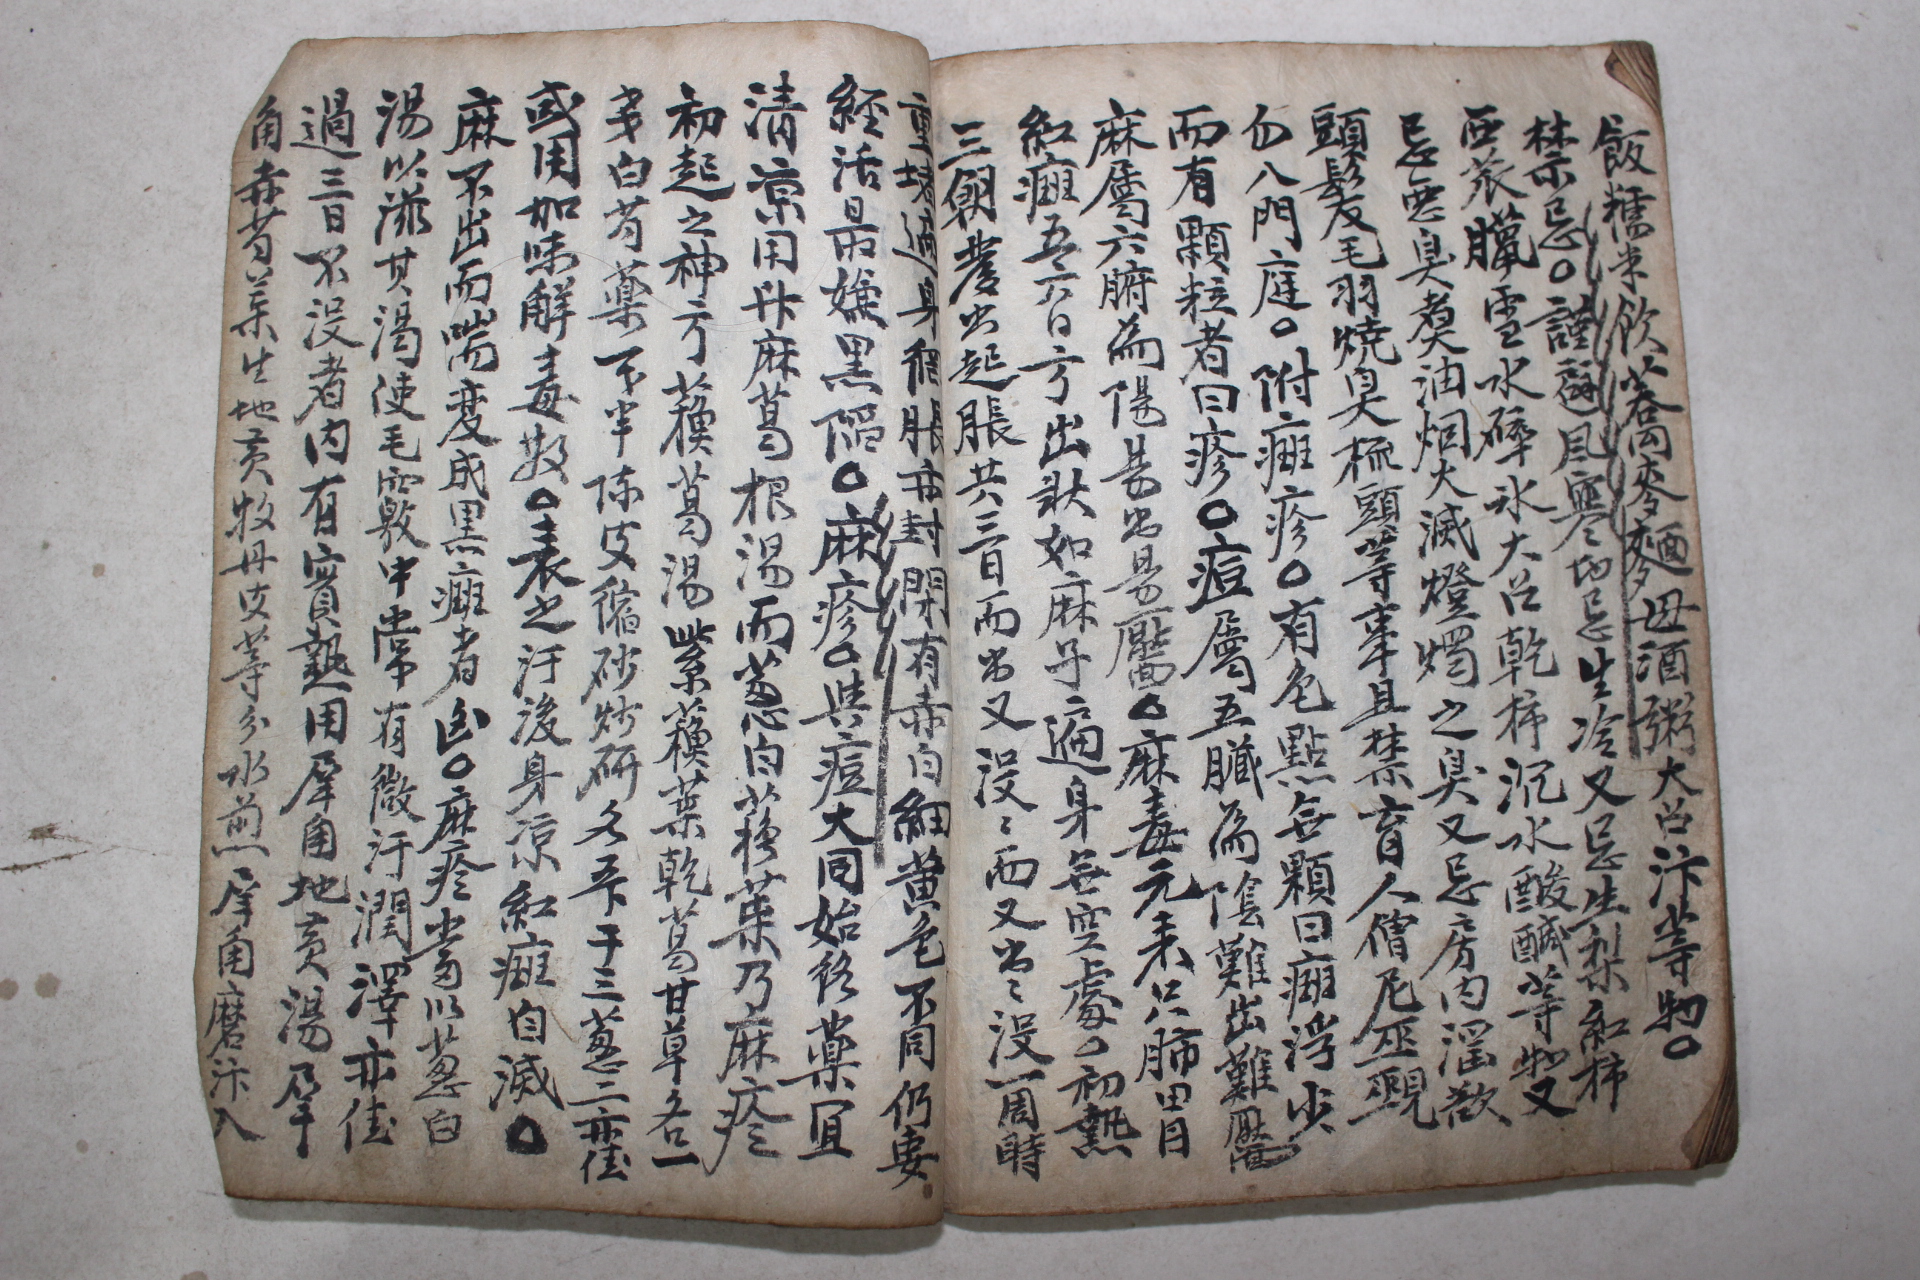 飯糯米飮蕎麥麵母酒粥大召汁等物○
禁忌○謹避風寒切忌生冷又忌生梨紅柿
西苽臘雪水礕氷大召乾柿沉水酸醎等物又
忌惡臭煑油烟火滅燈燭之臭又忌房內淫欲
頭髮毛羽燒臭梳頭等事且禁盲人僧尼巫覡
勿入門庭○附癍疹○有色點無顆曰癍浮尖
而有顆粒者曰疹○痘屬五臟為陰難出難靨
麻屬六腑為陽易出易靨○麻毒元來只肺胃
紅癍五六日方出狀如麻子遍身無空處○初熱
三朝發出起脹共三日而出又沒沒而又出出沒一周時
重者遍身綳脹亦封閉有赤白細黃色不同仍要
經活最嫌黑陷○麻疹○與痘大同始終藥宜
淸凉用升麻葛根湯而葱白蘇葉乃麻疹
初起之神方蘇葛湯紫蘇葉乾葛甘草各一
戔白芍藥一戔半陳皮縮砂炒硏各五卜干三葱二亦佳
或用加味解毒散○表之汗後身凉紅癍自滅○
麻不出而喘變成黑癍者凶○麻疹當以葱白
湯以滋其渴使毛竅中常有微汗潤澤亦佳
過三日不沒者內有實熱用犀角地黃湯犀
角赤芍藥生地黃牧丹皮等分水煎犀角磨汁入